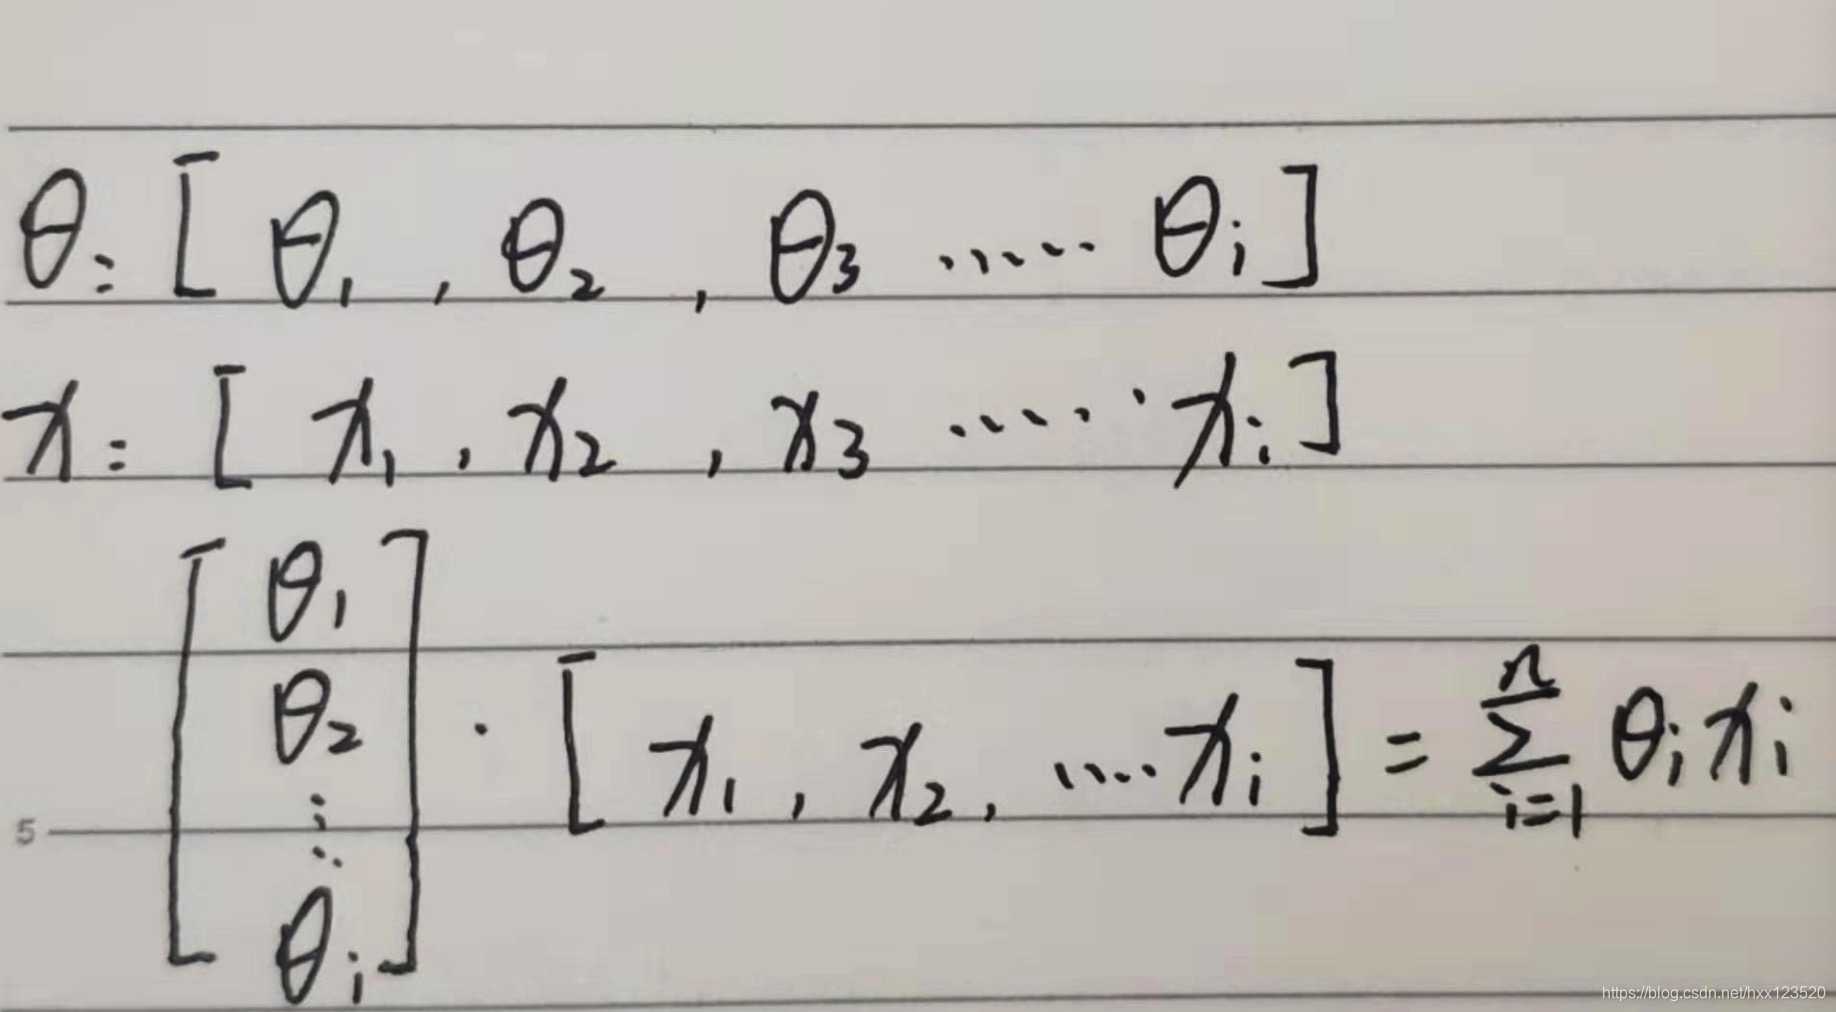 θ: [ θ₁ , θ₂ , θ₃ ...... θᵢ ]
x: [ x₁ , x₂ , x₃ ...... xᵢ ]
[ θ₁ θ₂ ⋮ θᵢ ] · [ x₁ , x₂ , .... xᵢ ] = ∑ⁿᵢ₌₁ θᵢ xᵢ
5
https://blog.csdn.net/hxx123520